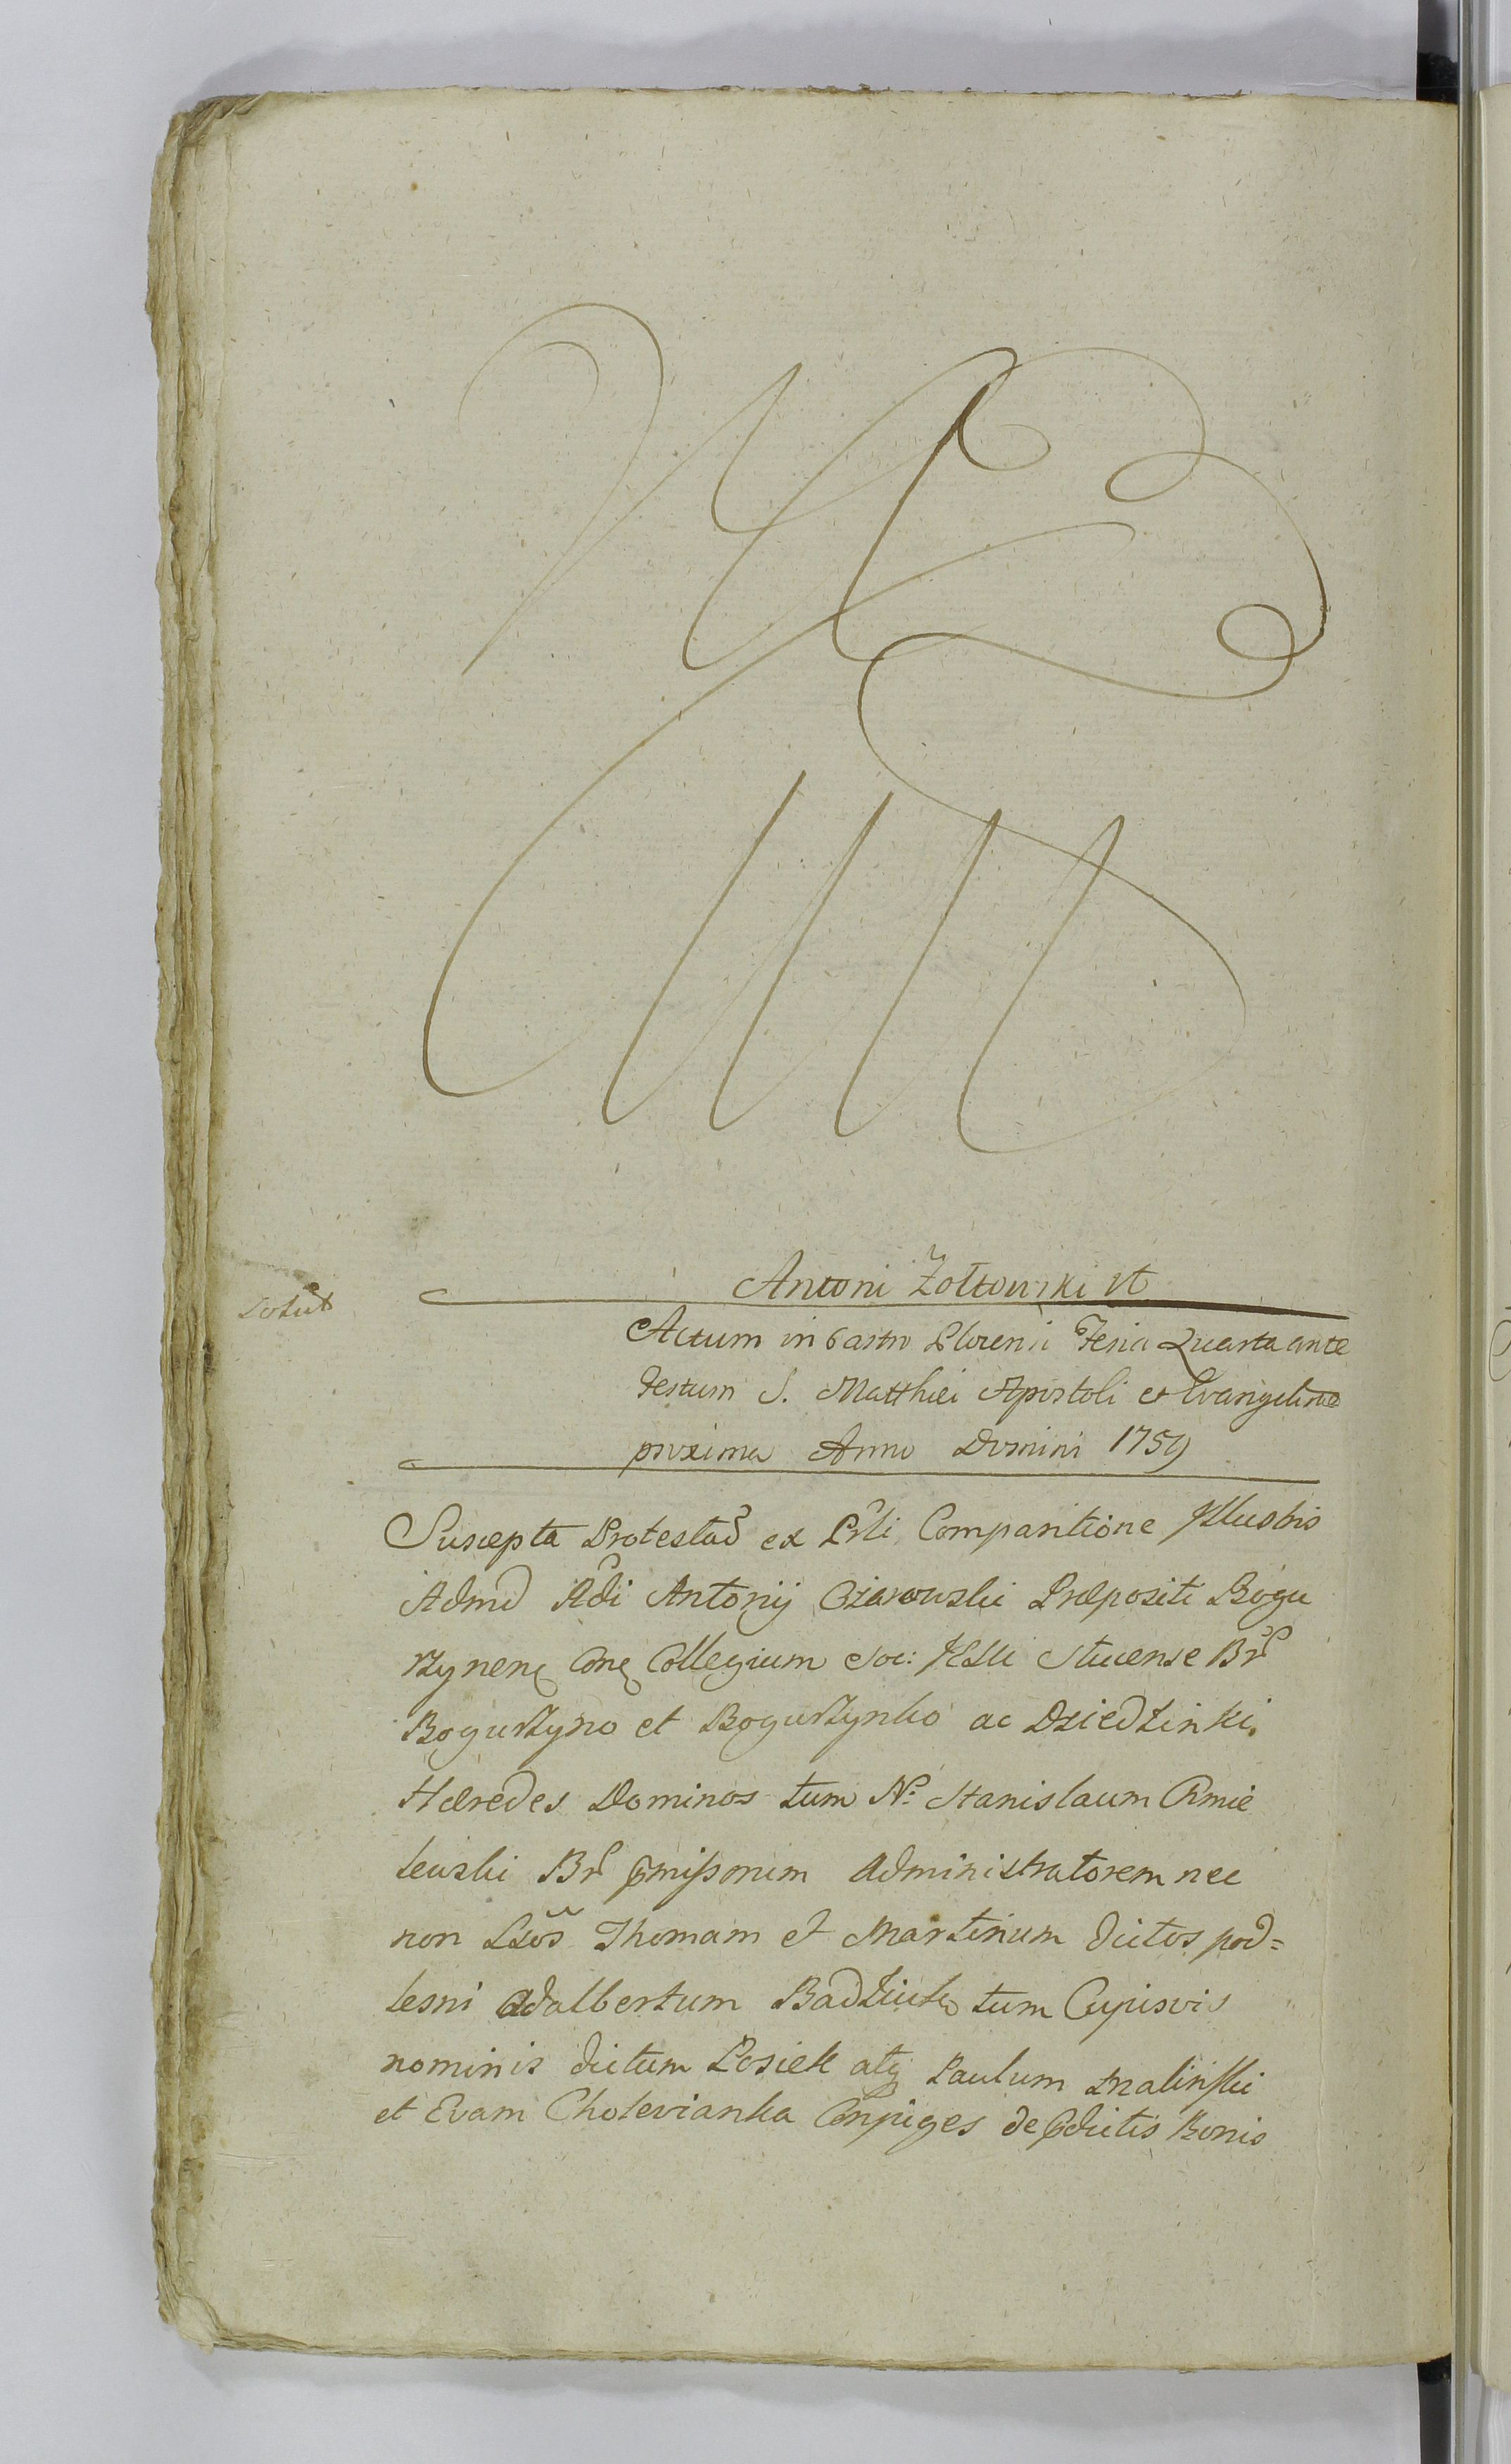 Antoni Zołtowski vt
Solut
Actum in Castro Plocensi Feria Quarta ante
Festum S. Matthæi Apostoli et Evangelistæ
proxima Anno Domini 1759
Suscepta Protestaõ ex Prli Comparitione Illustris
Admd Rdi Antonij Ożarowski Præpositi Bogu
rzynen Cone Collegium Soc: JESU Plocense Br
Bogurzyno et Bogurzynko ac Dziedzinki
Hæredes Dominos tum N. Stanislaum Chmie
lewski Br pmissorum Administratorem nec
non Lsõs Thomam et Martinum dictos pod=
lesni Adalbertum Badziuch tum Cujusvis
nominis dictum Losiek atq Paulum Malinski
et Evam Cholevianka Conjuges de pdictis Bonis